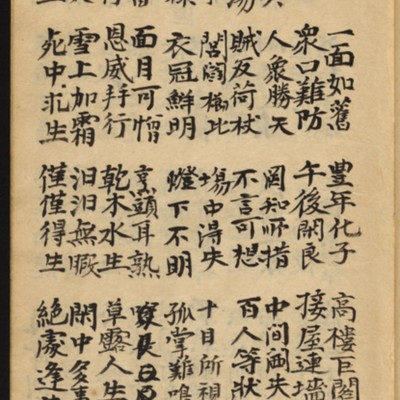 一面如舊 豊年化子 高樓巨閣
衆口難防 午後閑良 接屋連墻
人衆勝天 罔知所措 中間兩失
賊反荷杖 不言可想 百人等狀
閭閻櫛比 場中得失 十目所視
衣冠鮮明 燈下不明 孤掌難鳴
面目可憎 烹頭耳熟
恩威幷行 乾木水生 草露人生
雪上加霜 汨汨無暇 閑中多
死中求生 僅僅得生 絶處逢